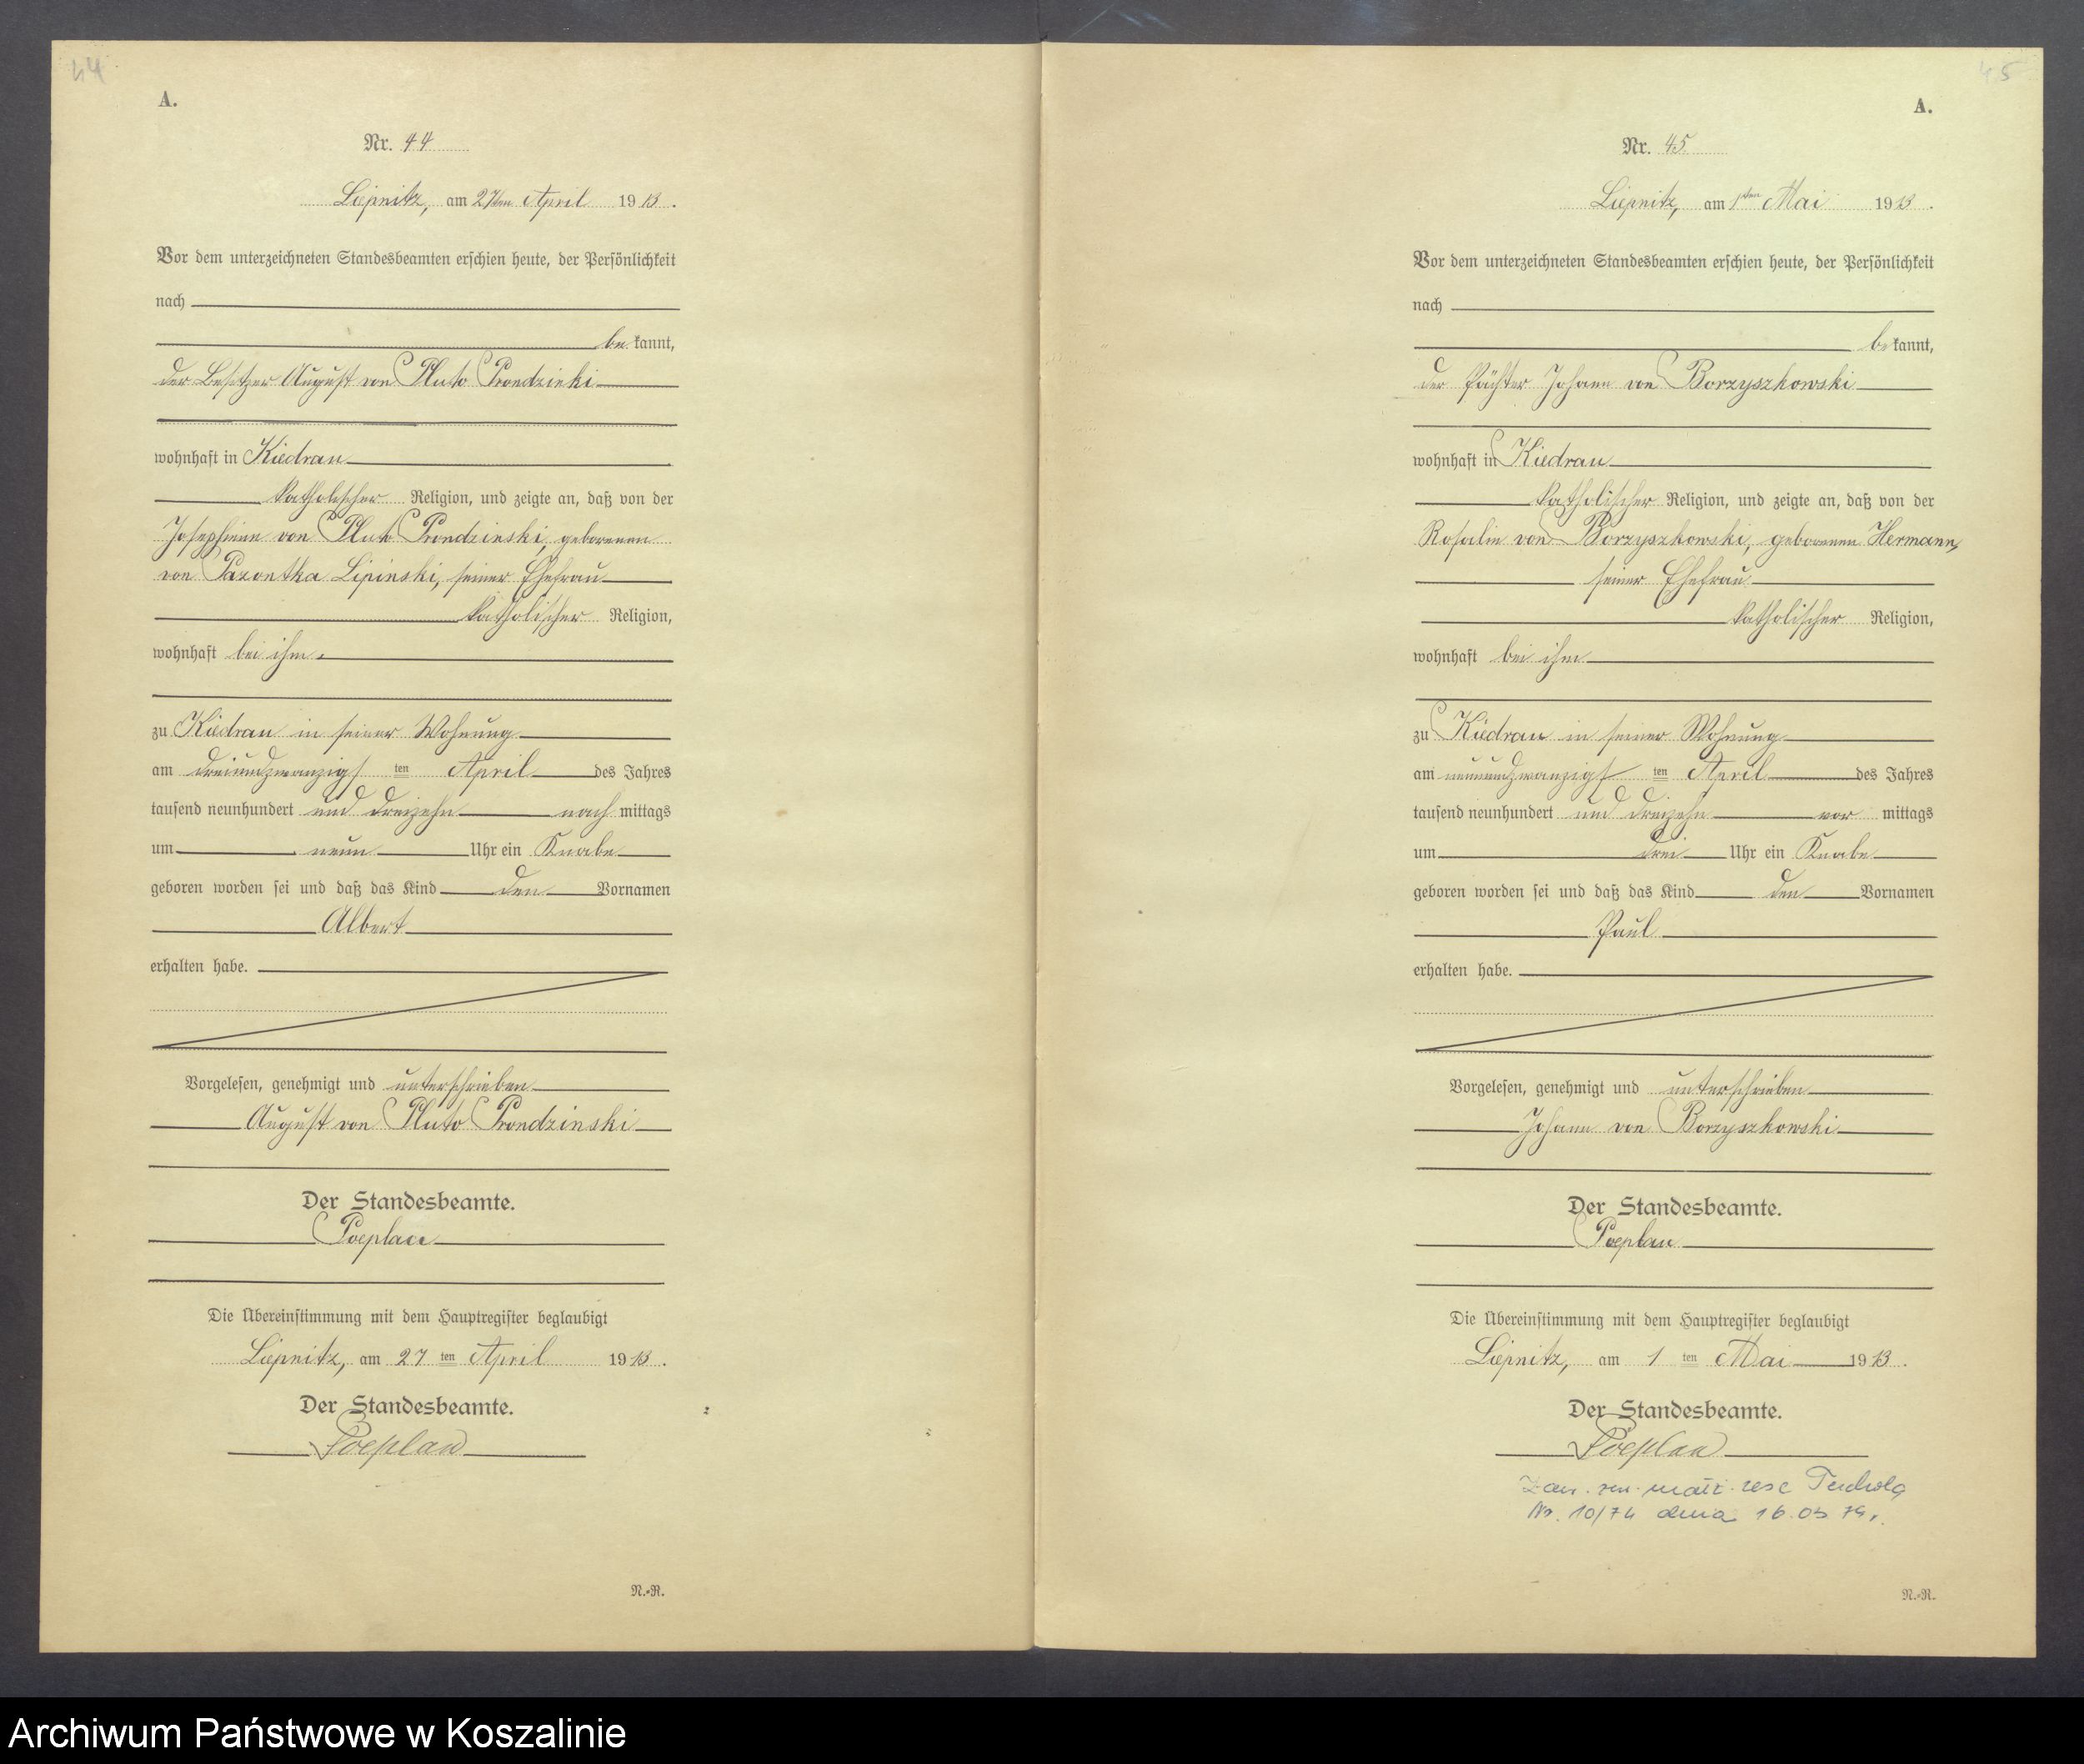 44
A.
Nr. 44
Liepnitz, am 27ten April 1913.
Vor dem unterzeichneten Standesbeamten erschien heute, der Persönlichkeit
nach
be kannt,
der Besitzer August von Pluto Prondzinski
wohnhaft in Kiedrau
katholischer Religion, und zeigte an, daß von der
Josephine von Pluto Prondzinski, geborenen
von Pazontka Lipinski, seiner Ehefrau
katholischer Religion,
wohnhaft bei ihm
zu Kiedrau in seiner Wohnung
am dreiundzwanzigs ten April des Jahres
tausend neunhundert und dreizehn nach mittags
um neun Uhr ein Knabe
geboren worden sei und daß das Kind den Vornamen
Albert
erhalten habe.
Vorgelesen, genehmigt und unterschrieben
August von Pluto Prondzinski
Der Standesbeamte.
Poeplau
Die Übereinstimmung mit dem Hauptregister beglaubigt
Liepnitz, am 27 ten April 1913.
Der Standesbeamte.
Poeplau
N.-R.
45
A.
Nr. 45
Liepnitz, am 1sten Mai 1913.
Vor dem unterzeichneten Standesbeamten erschien heute, der Persönlichkeit
nach
be kannt,
der Pächter Johann von Borzyszkowski
wohnhaft in Kiedrau
katholischer Religion, und zeigte an, daß von der
Rosalie von Borzyszkowski, geborenen Hermann,
seiner Ehefrau
katholischer Religion,
wohnhaft bei ihm
zu Kiedrau in seiner Wohnung
am neunundzwanzigs ten April des Jahres
tausend neunhundert und dreizehn vor mittags
um drei Uhr ein Knabe
geboren worden sei und daß das Kind den Vornamen
Paul
erhalten habe.
Vorgelesen, genehmigt und unterschrieben
Johann von Borzyszkowski
Der Standesbeamte.
Poeplau
Die Übereinstimmung mit dem Hauptregister beglaubigt
Liepnitz, am 1 ten Mai 1913.
Der Standesbeamte.
Poeplau
Tuchola
Nr. 10/74 dnia 16.03.74
N.-R.
Archiwum Państwowe w Koszalinie